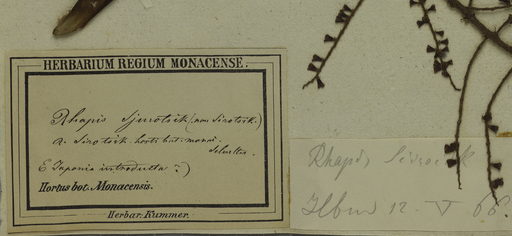 HERBARIUM REGIUM MONACENSE.
Rhapis Sjurotsik (non Sirotsik.)
R. Sirotsik horti bot. monac.
E Japonia introducta?)
Hortus bot. Monacensis.
Herbar. Kummer.
Rhapis
12. V 66.